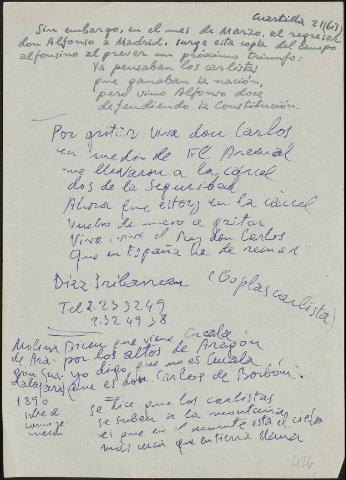 Cuartilla 21 (6ª)
Sin embargo, en el mes de Marzo, al regresar
don Alfonso a Madrid, surge esta copla del campo
alfonsino al prever un próximo triunfo:
Ya pensaban los carlistas
que ganaban la nación,
pero vino Alfonso doce
defendiendo la Constitución.
Por gritar viva don Carlos
en medio de El Arenal
me llevaron a la cárcel
dos de la Seguridad
Ahora que estoy en la cárcel
vuelvo de nuevo a gritar
Viva, viva el Rey don Carlos
que en España ha de reinar
Díaz Iribarren (Coplas carlista)
Tel 2.233249
2.324938
Molina Dicen que viene Cucala
de Ara- por los altos de Aragón
gón Gua- yo digo que no es Cucala
dalajara que es don Carlos de Borbón.
1890
se dice que los carlistas
se suben a la montaña
es que en el monte está el cielo
más cerca que en tierra llana